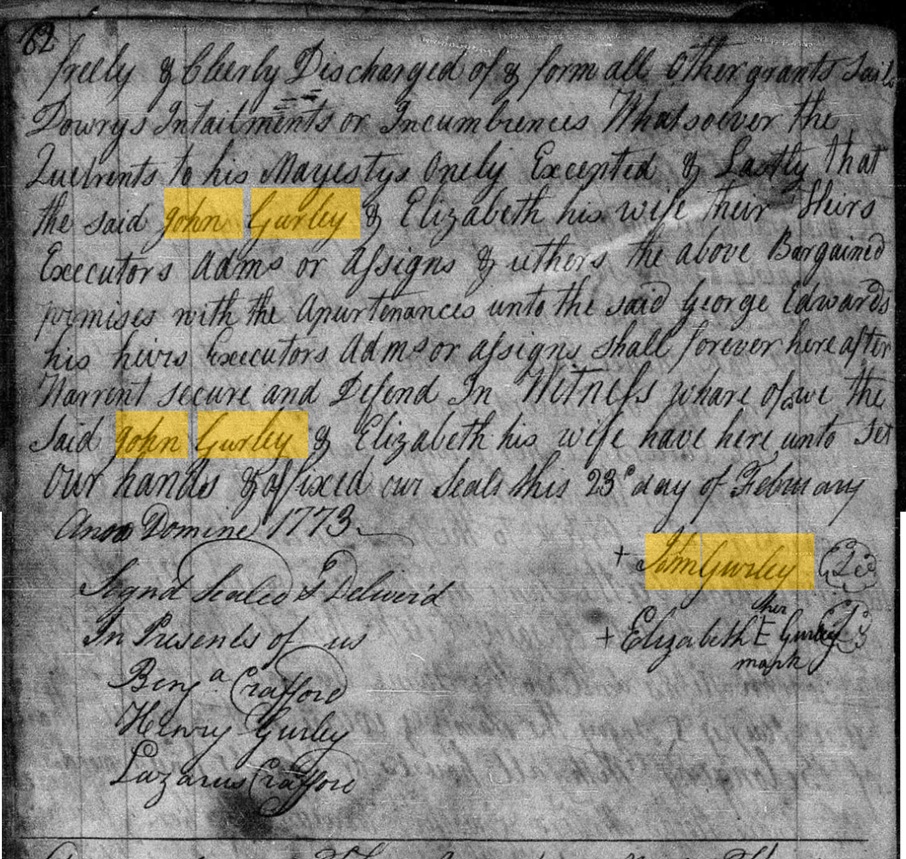 82
freely & Cleerly Discharged of & form all Other grants Sails
Dowrys Intailments or Incumbrences Whatsoever the
Quitrents to his Mayestys Onely Excepted & Lastly that
the said John Gurley & Elizabeth his wife their Heirs
Executors Adms or Assigns & uthers the above Bargained
primises with the Apurtenances unto the said George Edwards
his heirs Executors Adms or assigns shall forever here after
Warrent secure and Defend In Witness whare of we the
Said John Gurley & Elizabeth his wife have here unto Set
Our hands & affixed our Seals this 23d day of February
Anoo Domine 1773
+ John Gurley
Signd Sealed & Deliver'd
her
+ Elizabeth E Gurley
mark
In Presents of us
Benja Crafford
Henry Gurley
Lazarus Crafford